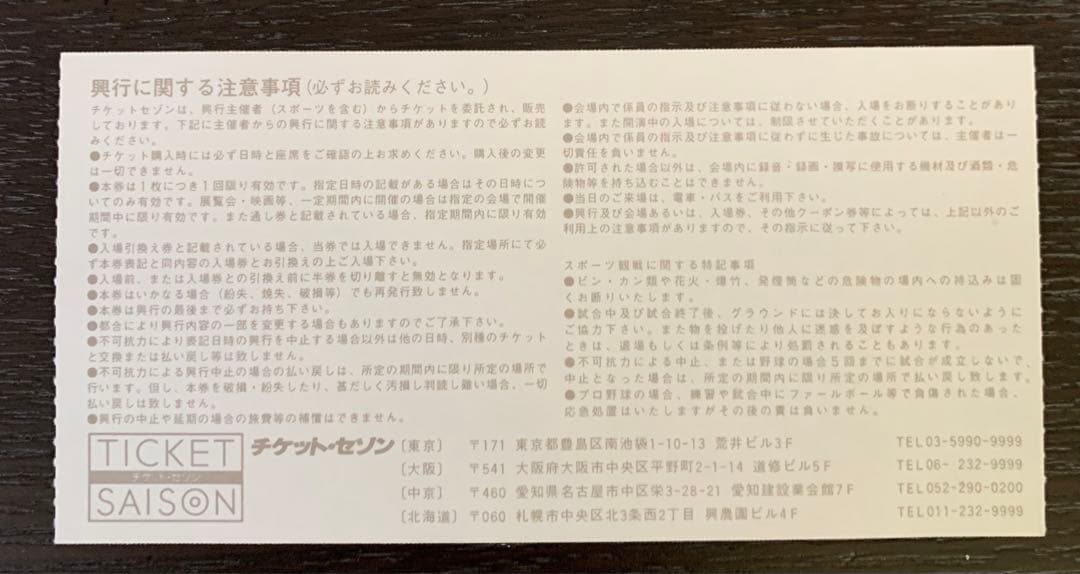 興行に関する注意事項(必ずお読みください。)
チケットセゾンは、興行主催者(スポーツを含む)からチケットを委託され、販売
しております。下記に主催者からの興行に関する注意事項がありますので必ずお読
みください。
●チケット購入時には必ず日時と座席をご確認の上お求めください。購入後の変更
は一切できません。
●本券は1枚につき1回限り有効です。指定日時の記載がある場合はその日時につ
いてのみ有効です。展覧会・映画等、一定期間内に開催の場合は指定の会場で開催
期間中に限り有効です。また通し券と記載されている場合、指定期間内に限り有効
です。
●入場引換え券と記載されている場合、当券では入場できません。指定場所にて必
ず本券表記と同内容の入場券とお引換えの上ご入場下さい。
●入場前、または入場券との引換え前に半券を切り離すと無効となります。
●本券はいかなる場合(紛失、焼失、破損等)でも再発行致しません。
●本券は興行の最後まで必ずお持ち下さい。
●都合により興行内容の一部を変更する場合もありますのでご了承下さい。
●不可抗力により表記日時の興行を中止する場合以外は他の日時、別種のチケット
と交換または払い戻し等は致しません。
●不可抗力による興行中止の場合の払い戻しは、所定の期間内に限り所定の場所で
行います。但し、本券を破損・紛失したり、甚だしく汚損し判読し難い場合、一切
払い戻しは致しません。
●興行の中止や延期の場合の旅費等の補償はできません。
●会場内で係員の指示及び注意事項に従わない場合、入場をお断りすることがあり
ます。また開演中の入場については、制限させていただくことがあります。
●会場内で係員の指示及び注意事項に従わずに生じた事故については、主催者は一
切責任を負いません。
●許可された場合以外は、会場内に録音・録画・複写に使用する機材及び酒類・危
険物等を持ち込むことはできません。
●当日のご来場は、電車・バスをご利用下さい。
●興行及び会場あるいは、入場券、その他クーポン券等によっては、上記以外のご
利用上の注意事項がありますので、その指示に従って下さい。
スポーツ観戦に関する特記事項
●ビン・カン類や花火・爆竹、発煙筒などの危険物の場内への持込みは固
くお断りいたします。
●試合中及び試合終了後、グラウンドには決してお入りにならないように
ご協力下さい。また物を投げたり他人に迷惑を及ぼすような行為のあった
ときは、退場もしくは条例等により処罰されることもあります。
●不可抗力による中止、または野球の場合5回までに試合が成立しないで、
中止となった場合は、所定の期間内に限り所定の場所で払い戻し致します。
●プロ野球の場合、練習や試合中にファールボール等で負傷された場合、
応急処置はいたしますがその後の責は負いません。
TICKET
チケット・セゾン
SAISON
チケット・セゾン
(東京) 〒171 東京都豊島区南池袋1-10-13 荒井ビル3F TEL03-5990-9999
(大阪) 〒541 大阪府大阪市中央区平野町2-1-14 道修ビル5F TEL06- 232-9999
(中京) 〒460 愛知県名古屋市中区栄3-28-21 愛知建設業会館7F TEL052-290-0200
(北海道) 〒060 札幌市中央区北3条西2丁目 興農園ビル4F TEL011-232-9999